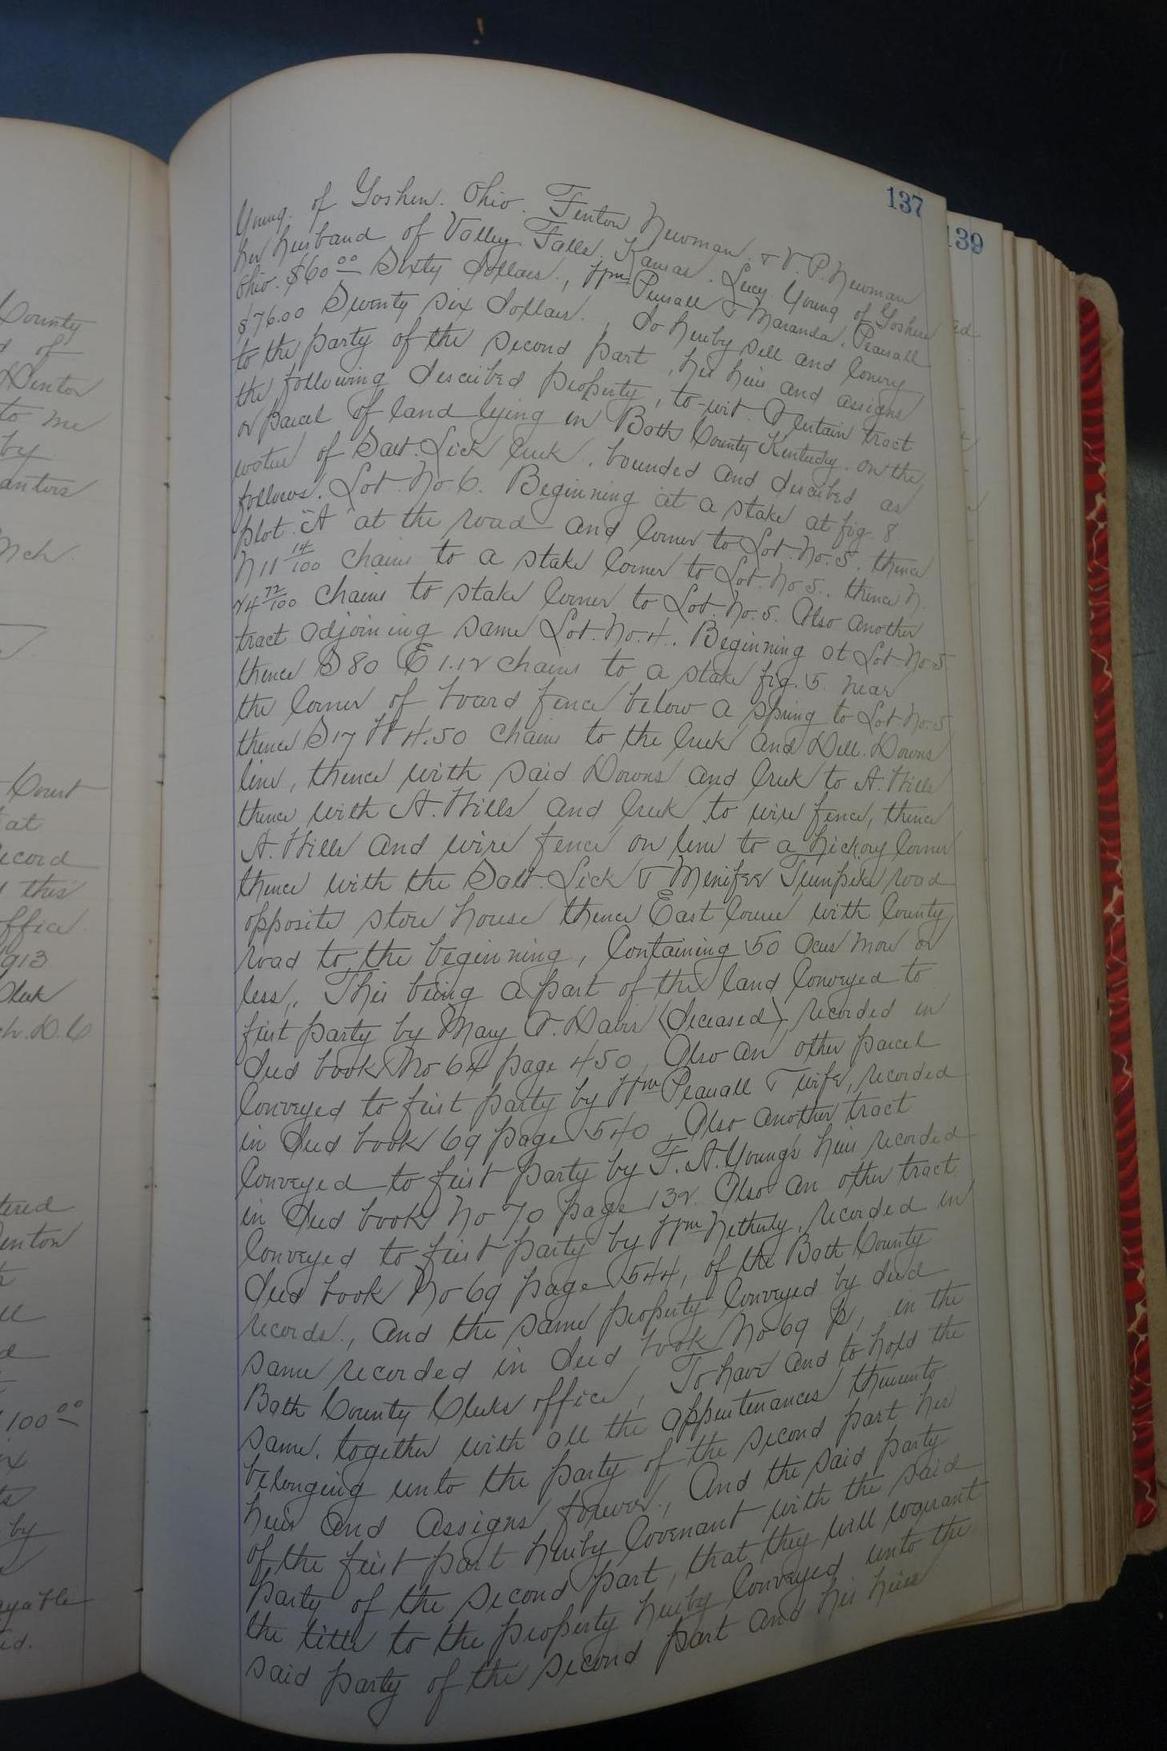 137
139
Young. of Goshen. Ohio. Fenton Newman. & V. P. Newman
her husband of Valley Falls, Kansas. Lucy Young of Goshen
Ohio. $60.00 Sixty Dollars., Wm Pearsall & Maranda. Pearsall
$76.00 Seventy six Dollars. Do hereby sell and convey
to the party of the second part, his heirs and assigns
the following described property, to-wit A certain tract
or parcel of land lying in Bath County Kentucky. on the
water of Salt. Lick Creek. bounded and described as
follows. Lot. No. 6. Beginning at a stake at fig. 8.
plot "A" at the road and corner to Lot. No. 5. thence
N 11 14/100 chains to a stake corner to Lot. No. 5.. thence N.
24 72/100 chains to stake corner to Lot. No. 5. Also another
tract adjoining same Lot. No. 4. Beginning at Lot No. 5
thence S 80 E 1.12 chains to a stake fig. 5. near
the corner of board fence below a spring to Lot No. 5
thence S 17 W 4.50 chains to the Creek and Dell. Downs
line, thence with said Downs and Creek to A. Wills
thence with A. Wills and Creek to wire fence, thence
A. Wills and wire fence on line to a hickory corner
thence with the Salt. Lick & Menifee Turnpike road
opposite store house thence East course with County
road to the beginning, Containing 50 acres more or
less,. This being a part of the land conveyed to
first party by Mary T. Davis (deceased), recorded in
deed book No 64 page 450, Also an other parcel
conveyed to first party by Wm Pearsall & wife, recorded
in deed book 69 page 540 Also another tract
conveyed to first party by F. A. Young's heirs recorded
in deed book No 70 page 132. Also an other tract
conveyed to first party by Wm Netherly, recorded in
deed book No 69 page 544, of the Bath County
records., and the same property conveyed by deed
same recorded in deed book No 69 P, in the
Bath County Clerks office, To have and to hold the
same. together with all the appurtenances thereunto
belonging unto the party of the second part his
heirs and assigns forever, And the said party
of the first part hereby covenant with the said
party of the second part, that they will warrant
the title to the property hereby conveyed unto the
said party of the second part and his heirs